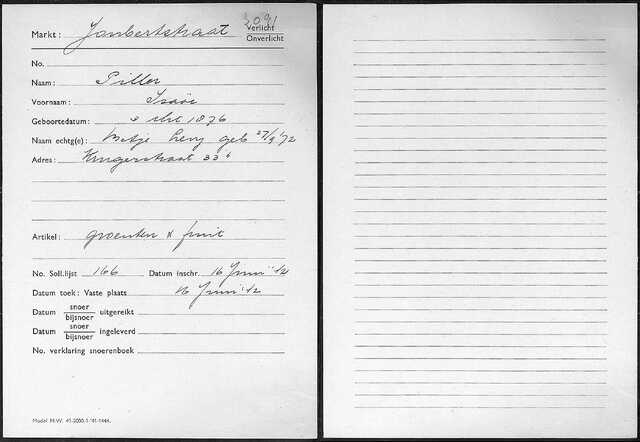 2091
Markt: Joubertstraat Verlicht
Onverlicht
No.
Naam: Piller
Voornaam: Isaäc
Geboortedatum: 3 Oct 1876
Naam echtg(e): Metje Levy geb 27/9 '72
Adres: Krugerstraat 33
Artikel: groenten & fruit
No. Soll.lijst 166 Datum inschr. 16 Juni '42
Datum toek: Vaste plaats 16 Juni '42
Datum snoer
bijsnoer uitgereikt
Datum snoer
bijsnoer ingeleverd
No. verklaring snoerenboek
Model M.W. 41-2000-1-'41-1444.